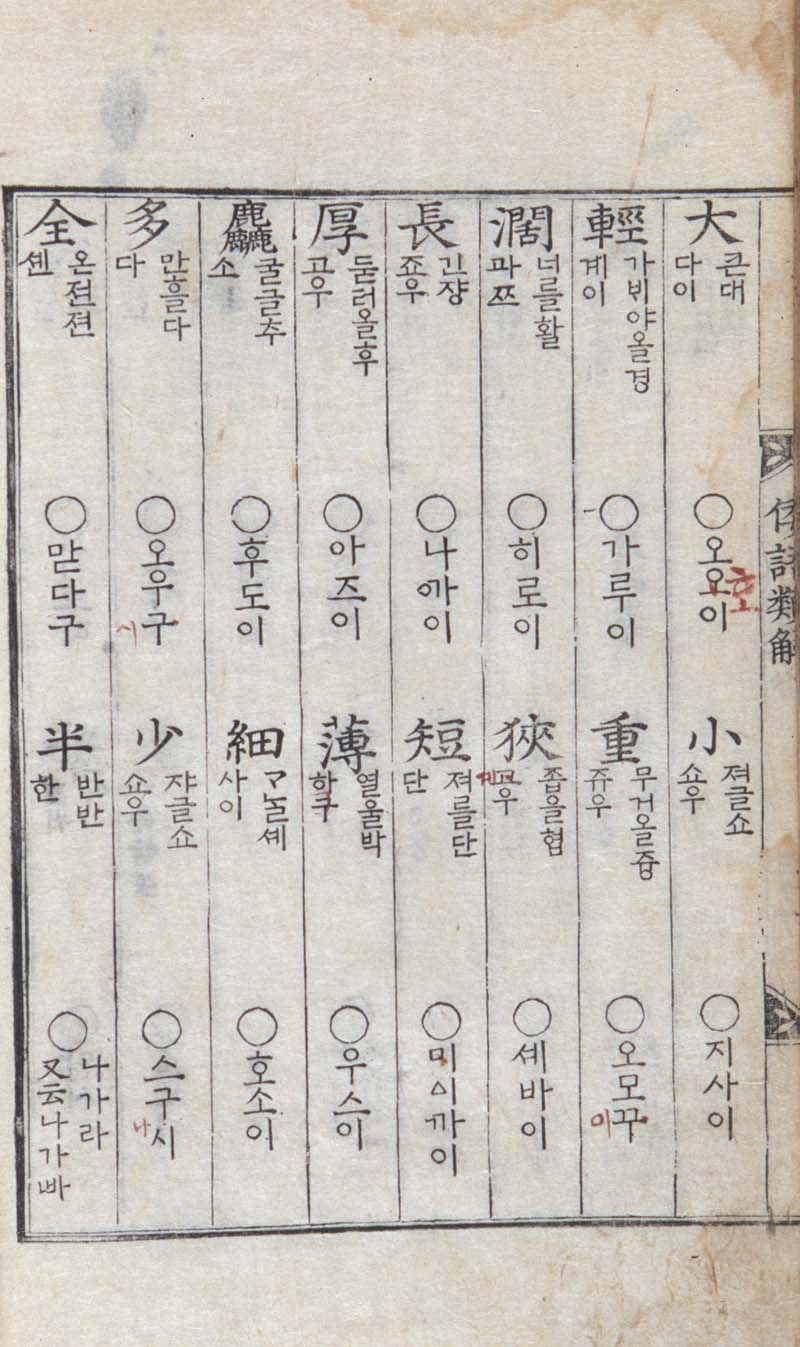 倭語類解
大 큰대 다이 ○오오이 호
小 져글쇼 쇼우 ○지사이
輕 가ᄇᆡ야올경 계이 ○가루이
重 무거올즁 쥬우 ○오모꾸 이
濶 너를활 과쯔 ○히로이
狹 좁을협 교우 ○셰바이
長 긴쟝 죠우 ○나까이
短 져를단 단 ○미ᅀᅵ까이
厚 둗러올후 고우 ○아즈이
薄 열울박 하구 ○우스이
麤 굴글추 소 ○후도이
細 ᄀᆞᄂᆞᆯ셰 사이 ○호소이
多 만흘다 다 ○오우구 시
少 쟈글쇼 쇼우 ○스구시 나
全 온젼젼 셴 ○맏다구
半 반반 한 ○나가라 又云나가빠